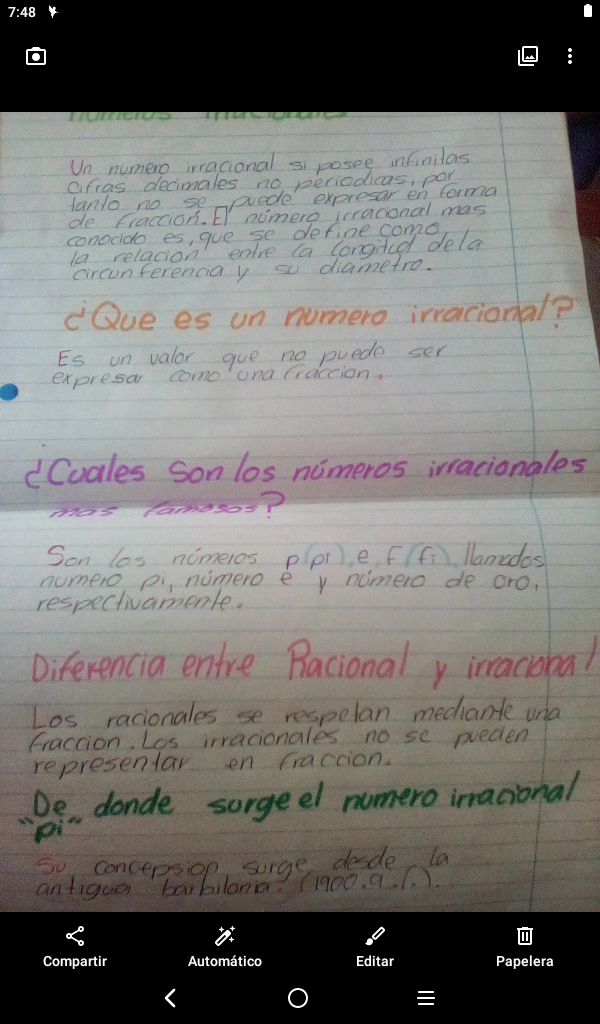 7:48
numeros irracionales
Un numero irracional si posee infinitas
cifras decimales no periodicas, por
tanto no se puede expresar en forma
de fraccion. El número irracional mas
conocido es, que se define como
la relacion entre la longitud de la
circunferencia y su diametro.
¿Que es un numero irracional?
Es un valor que no puede ser
expresar como una fraccion.
¿Cuales son los números irracionales
mas famosos?
Son los números p (pi), e, f (fi) llamados
numero pi, número e y número de oro,
respectivamente.
Diferencia entre Racional y irracional
Los racionales se respetan mediante una
fraccion. Los irracionales no se pueden
representar en fraccion.
De donde surge el numero irracional
"pi"
Su concepsion surge desde la
antigua barbilonia. (1900.a.C.).
Compartir
Automático
Editar
Papelera